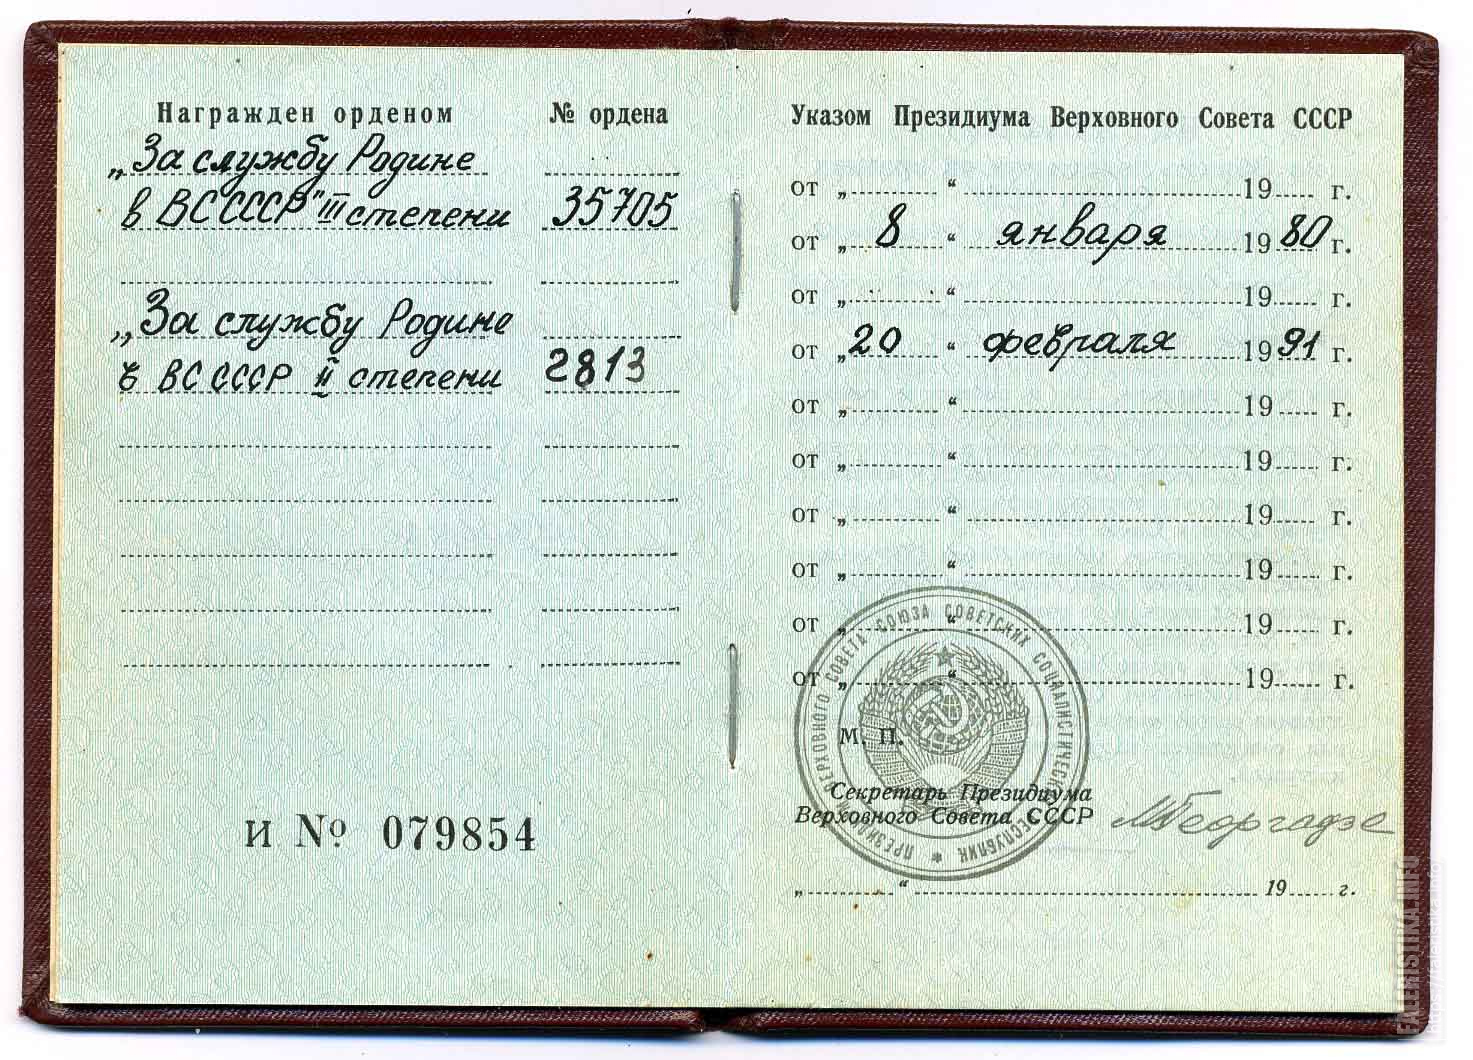 Награжден орденом № ордена
„За службу Родине
в ВС СССР" III степени 35705
„За службу Родине
в ВС СССР II степени 2813
И № 079854
Указом Президиума Верховного Совета СССР
от „ “ 19 г.
от „ 8 “ января 1980 г.
от „ “ 19 г.
от „20 “ февраля 1991 г.
от „ “ 19 г.
от „ “ 19 г.
от „ “ 19 г.
от „ “ 19 г.
от „ “ 19 г.
от „ “ 19 г.
М. П.
ПРЕЗИДИУМ ВЕРХОВНОГО СОВЕТА СОЮЗА СОВЕТСКИХ СОЦИАЛИСТИЧЕСКИХ РЕСПУБЛИК
Секретарь Президиума
Верховного Совета СССР МГеоргадзе
„ “ 19 г.
FALERISTIKA.INFO